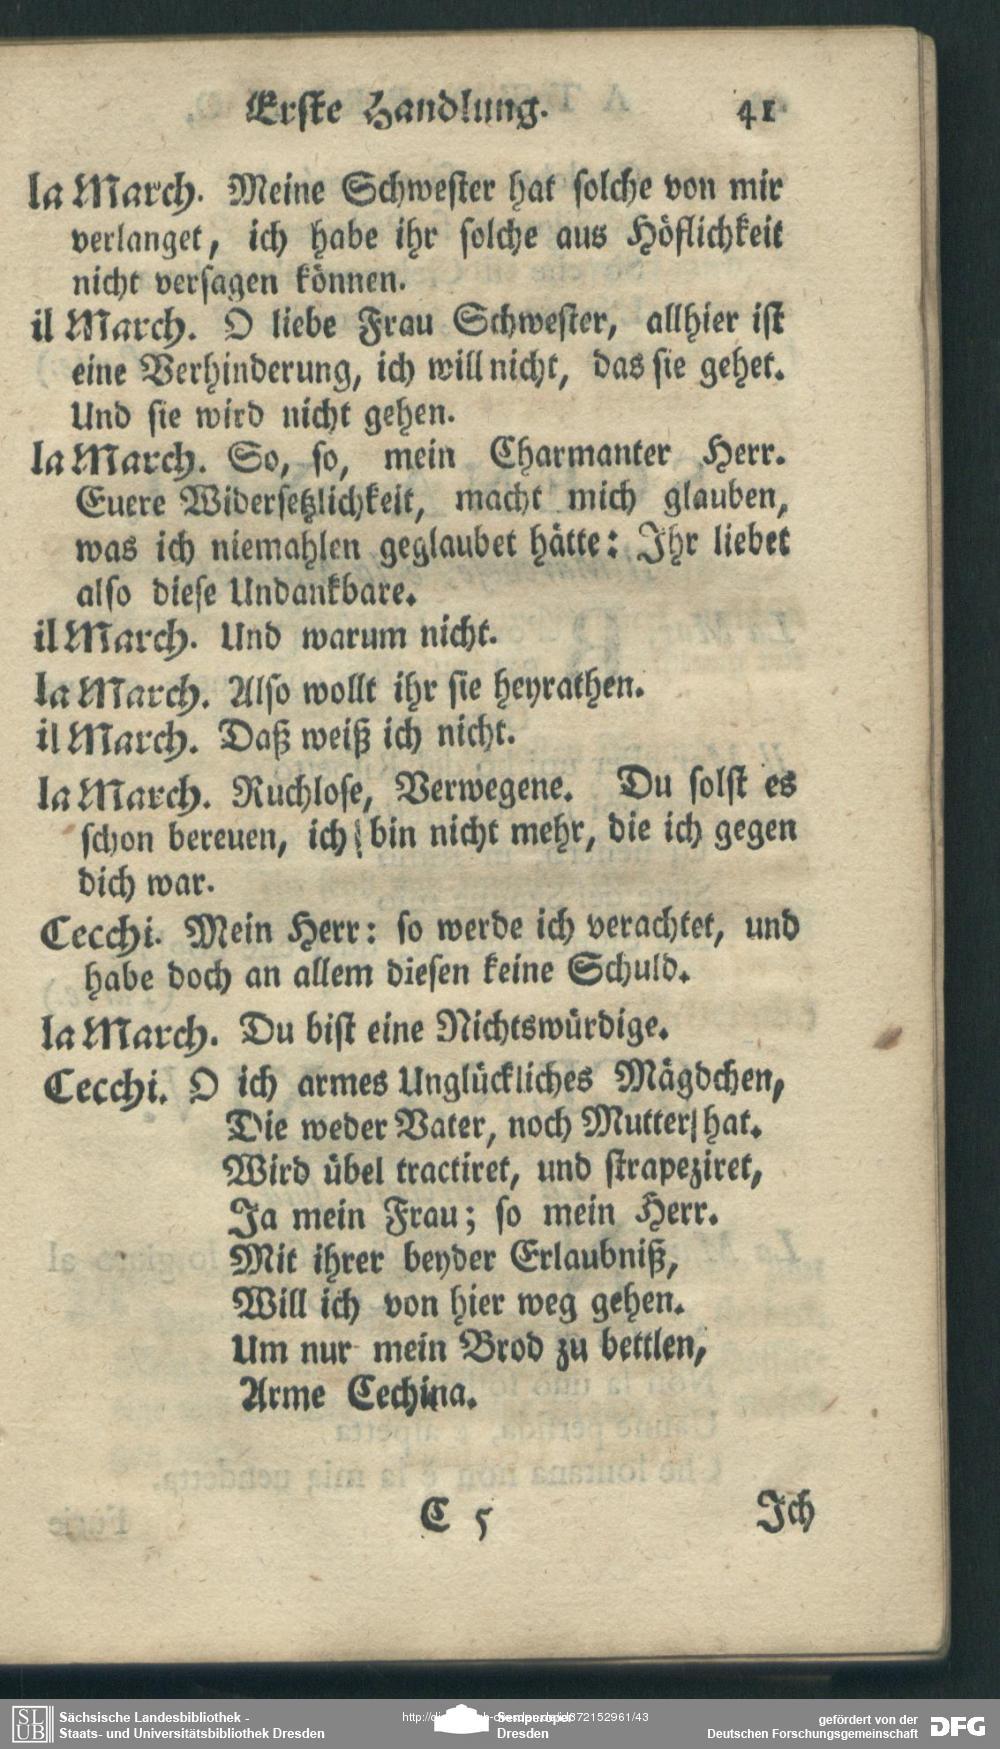 Erste Handlung. 41
la March. Meine Schwester hat solche von mir
verlanget, ich habe ihr solche aus Höflichkeit
nicht versagen können.
il March. O liebe Frau Schwester, allhier ist
eine Verhinderung, ich will nicht, das sie gehet.
Und sie wird nicht gehen.
la March. So, so, mein Charmanter Herr.
Euere Widersetzlichkeit, macht mich glauben,
was ich niemahlen geglaubet hätte: Ihr liebet
also diese Undankbare.
il March. Und warum nicht.
la March. Also wollt ihr sie heyrathen.
il March. Daß weiß ich nicht.
la March. Ruchlose, Verwegene. Du solst es
schon bereuen, ich bin nicht mehr, die ich gegen
dich war.
Cecchi. Mein Herr: so werde ich verachtet, und
habe doch an allem diesen keine Schuld.
la March. Du bist eine Nichtswürdige.
Cecchi. O ich armes Unglückliches Mägdchen,
Die weder Vater, noch Mutter hat.
Wird übel tractiret, und strapeziret,
Ja mein Frau; so mein Herr.
Mit ihrer beyder Erlaubniß,
Will ich von hier weg gehen.
Um nur mein Brod zu bettlen,
Arme Cechina.
C 5 Ich
SLUB
Sächsische Landesbibliothek -
Staats- und Universitätsbibliothek Dresden
Semperoper
Dresden
gefördert von der
Deutschen Forschungsgemeinschaft
DFG